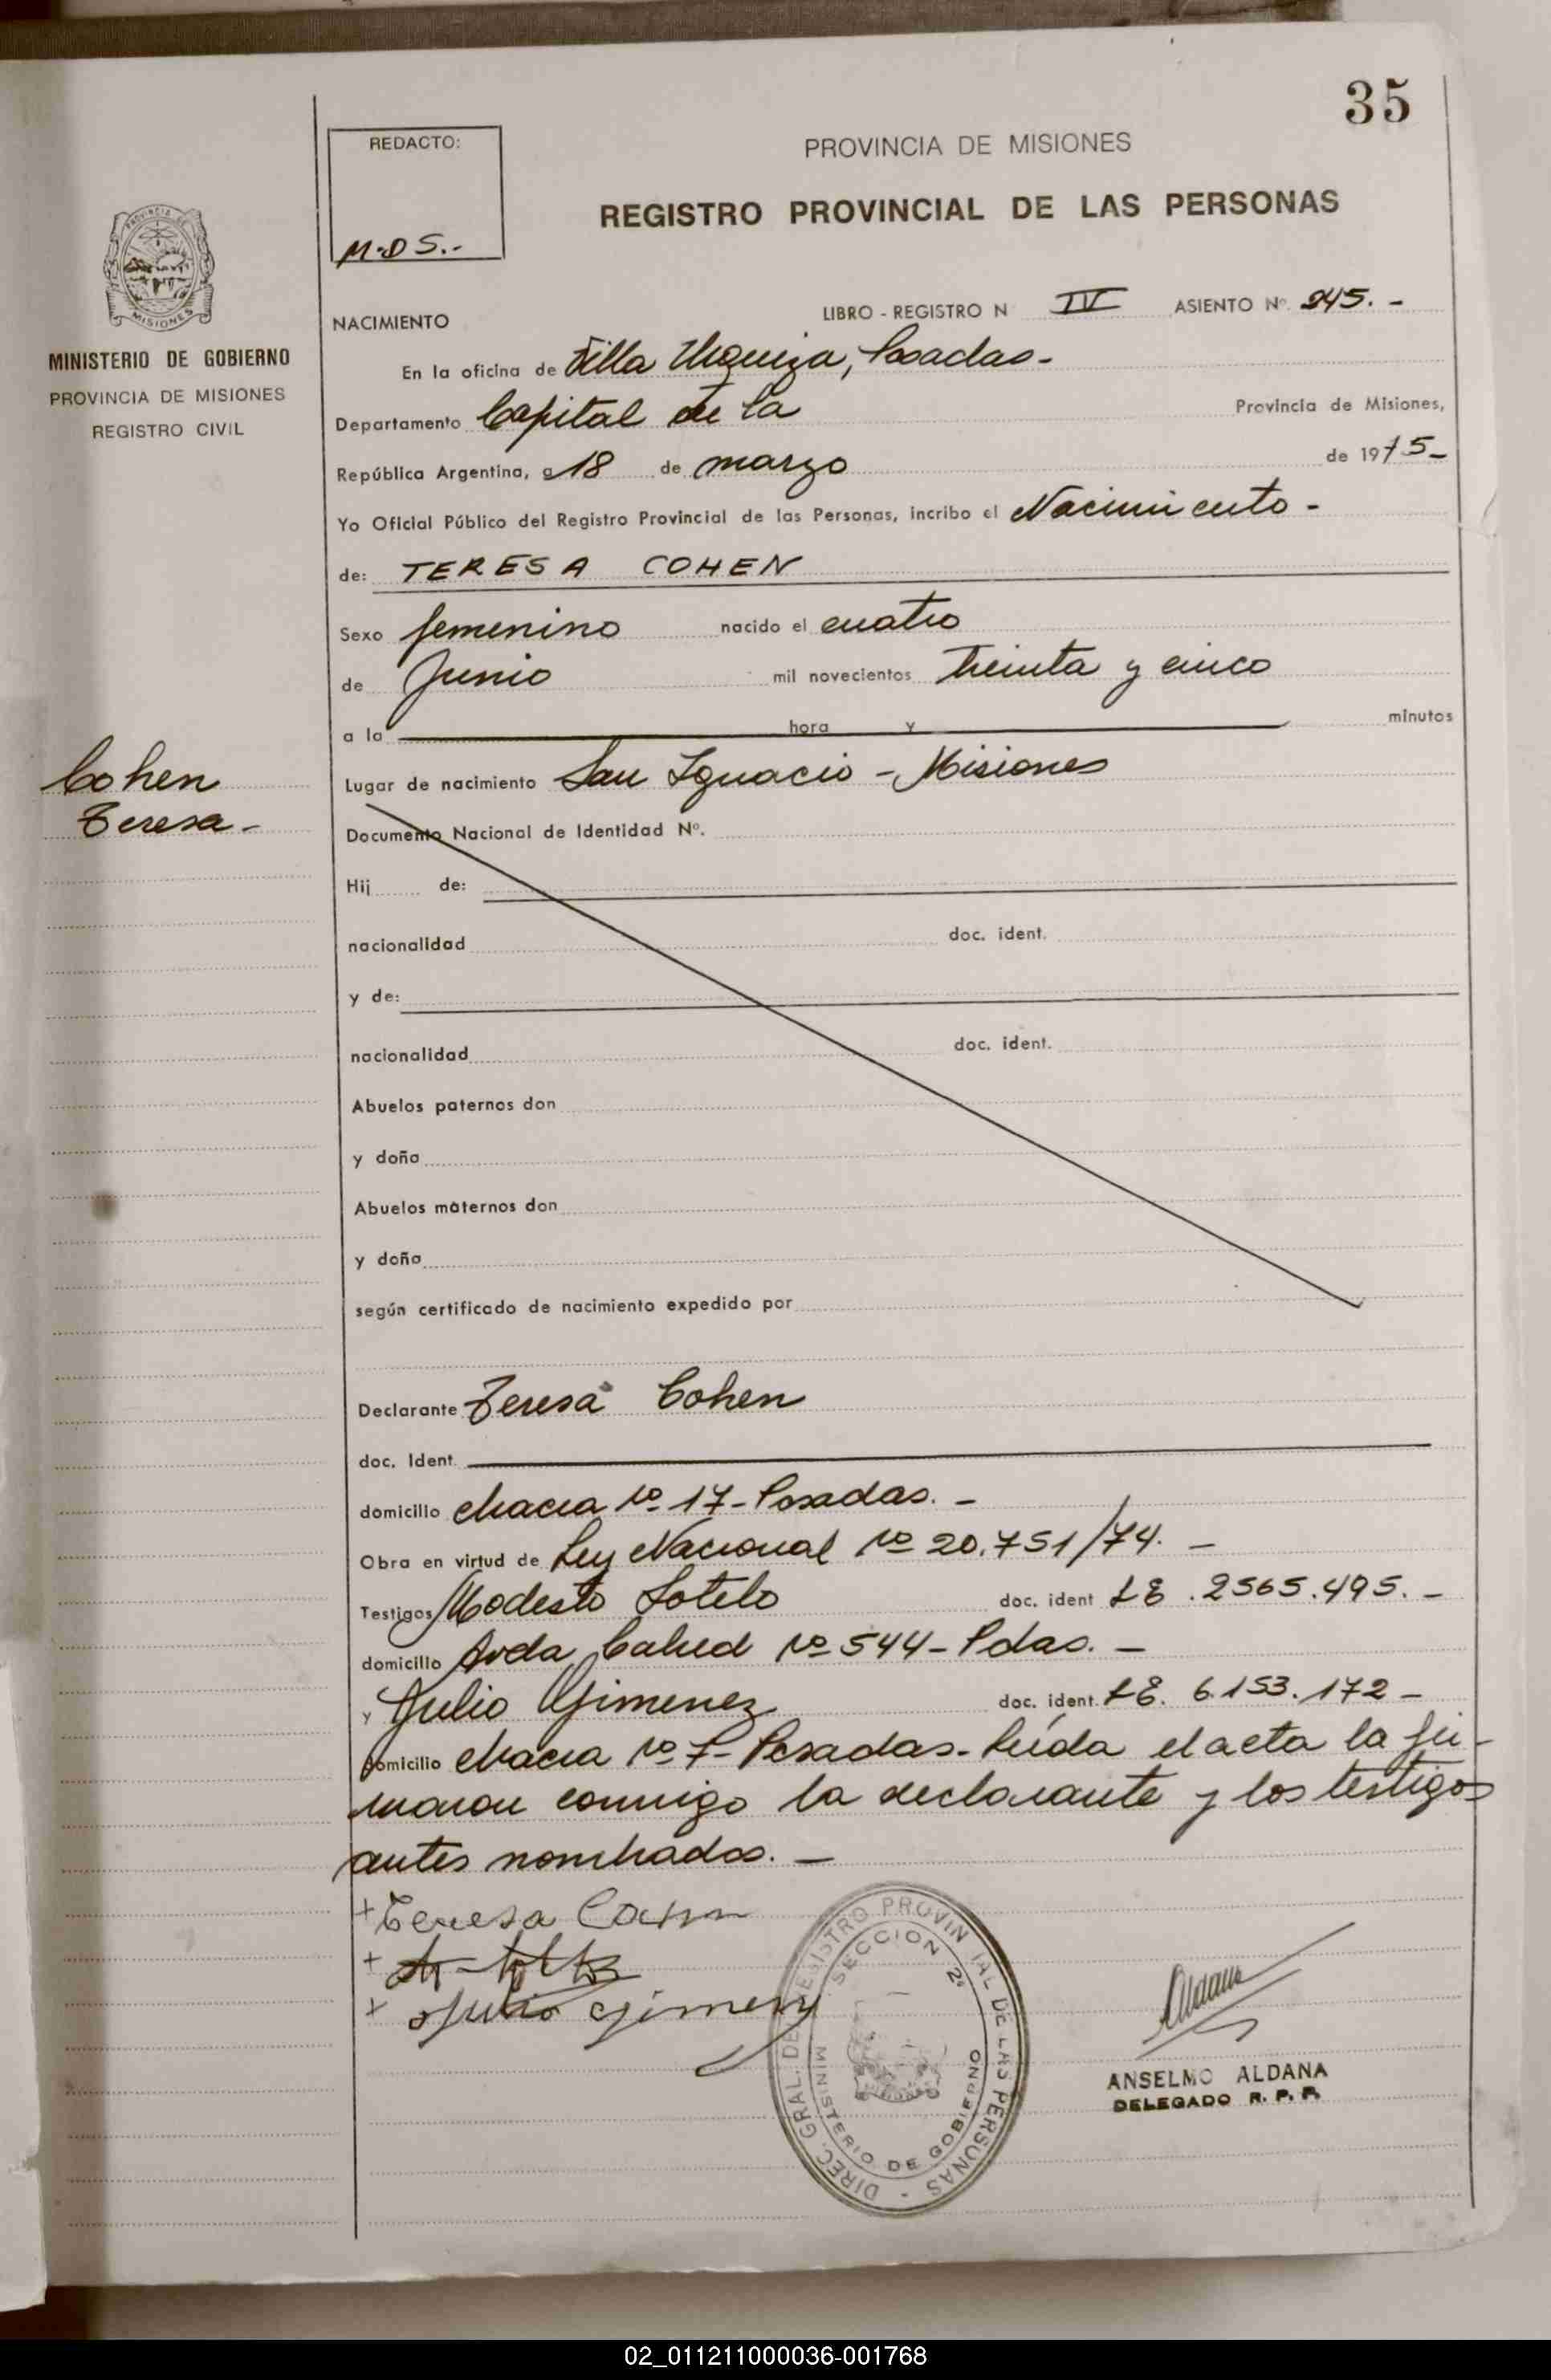 35
REDACTO:
M.D S.-
PROVINCIA DE MISIONES
REGISTRO PROVINCIAL DE LAS PERSONAS
PROVINCIA DE
MISIONES
MINISTERIO DE GOBIERNO
PROVINCIA DE MISIONES
REGISTRO CIVIL
NACIMIENTO LIBRO - REGISTRO N IV ASIENTO Nº. 245. -
En la oficina de Villa Urquiza, Posadas-
Departamento Capital de la Provincia de Misiones,
República Argentina, a 18 de marzo de 1975-
Yo Oficial Público del Registro Provincial de las Personas, incribo el Nacimiento -
de: TERESA COHEN
Sexo femenino nacido el cuatro
de Junio mil novecientos treinta y cinco
a la hora y minutos
Cohen
Teresa-
Lugar de nacimiento San Ignacio - Misiones
Documento Nacional de Identidad Nº.
Hij de:
nacionalidad doc. ident.
y de:
nacionalidad doc. ident.
Abuelos paternos don
y doña
Abuelos maternos don
y doña
según certificado de nacimiento expedido por
Declarante Teresa Cohen
doc. Ident.
domicilio chacra Nº 17-Posadas. -
Obra en virtud de Ley Nacional Nº 20.751/74. -
Testigos Modesto Sotelo doc. ident LE .2565.495. -
domicilio Avda Nº 544-Pdas. -
y Julio Gimenez doc. ident. LE. 6.153.172 -
domicilio chacra Nº 7-Posadas- Leída el acta la fir-
maron conmigo la declarante y los testigos
antes nombrados. -
+ Teresa
+
x Julio Gimenez
DIREC. GRAL. DEL REGISTRO PROVINCIAL DE LAS PERSONAS -
SECCION 2ª
MINISTERIO DE GOBIERNO
Aldana
ANSELMO ALDANA
DELEGADO R. P. P.
02_011211000036-001768